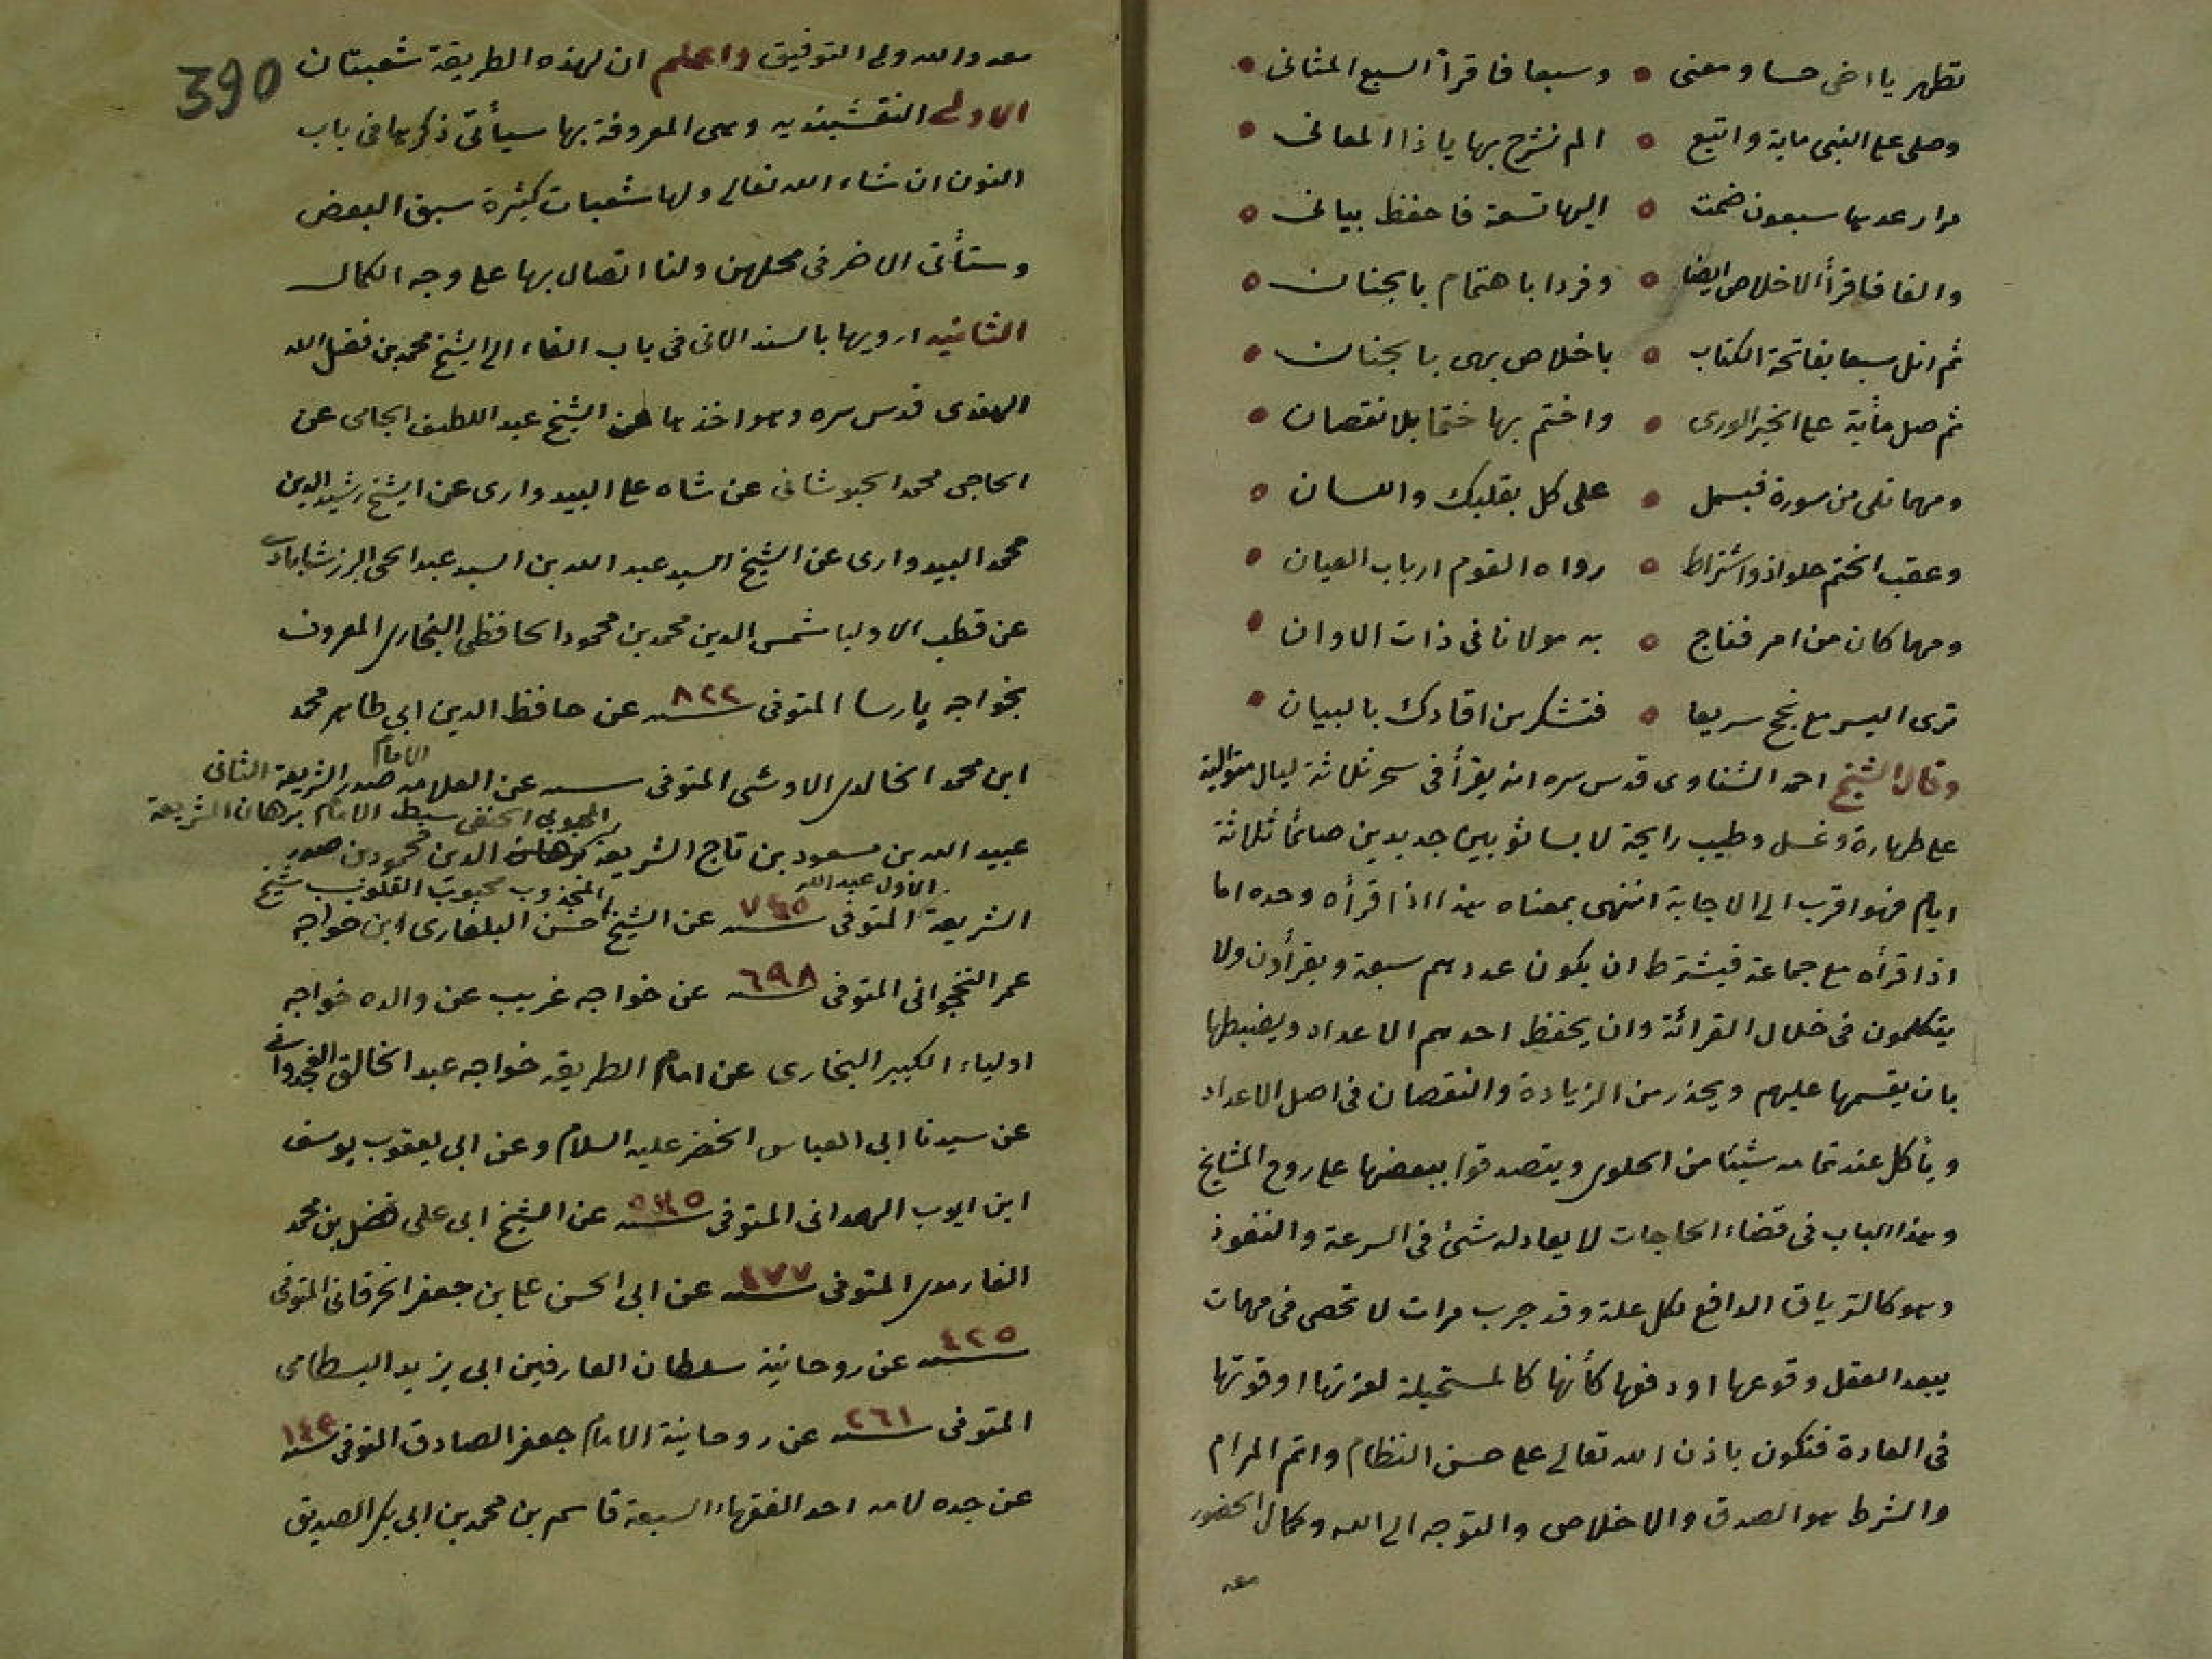 تطهر يا اخى حسا ومعنى • وسبعا فاقرأ السبع المثانى •
وصلى على النبى ماية واتبع • الم نشرح بها ياذا المعانى •
مرار عدها سبعون ضمت • اليها تسعة فاحفظ بيانى •
والفا فاقرأ الاخلاص ايضا • وفردا باهتمام بالجنان •
ثم اتل سبعا بفاتحة الكتاب • باخلاص بهى بالجنان •
ثم صل مأية على الخير الورى • واختم بها ختما بلا نقصان •
ومهما تلى من سورة فبسمل • على كل بقلبك واللسان •
وعقب الختم حلواذ واشتراط • رواه القوم ارباب العيان •
ومهما كان من امر فناج • به مولانا فى ذات الاوان •
ترى اليسر مع نجح سريعا • فتشكر من افادك بالبيان •
وقال الشيخ احمد الشناوى قدس سره انه يقرأ فى سحر ثلاثة ليال متوالية
على طهارة وغسل وطيب رايحة لابسا ثوبين جديدين صائما ثلاثة
ايام فهو اقرب الى الاجابة انتهى بمعناه هذا اذا قرأه وحده اما
اذا قرأه مع جماعة فيشترط ان يكون عددهم سبعة ويقرأون ولا
يتكلمون فى خلال القرائة وان يحفظ احدهم الاعداد ويضبطها
بان يقسمها عليهم ويحذر من الزيادة والنقصان فى اصل الاعداد
ويأكل عند تمامه شيئا من الحلوى ويتصدقوا ببعضها على روح المشايخ
وهذا الباب فى قضاء الحاجات لا يعادله شئ فى السرعة والنفوذ
وهو كالترياق الدافع لكل علة وقد جرب مرات لا تحصى فى مهمات
يبعد العقل وقوعها او دفعها كأنها كالمستحيلة لعزتها او قوتها
فى العادة فتكون باذن الله تعالى على حسن النظام واتم المرام
والشرط هو الصدق والاخلاص والتوجه الى الله وكمال الحضور
معه
390
معه والله ولى التوفيق واعلم ان لهذه الطريقة شعبتان
الاولى النقشبنديه وهى المعروفة بها سيأتى ذكرها فى باب
النون ان شاء الله تعالى ولها شعبات كثيرة سبق البعض
وستأتى الاخر فى محلهن ولنا اتصال بها على وجه الكمال
الثانية ارويها بالسند الاتى فى باب الفاء الى الشيخ محمد بن فضل الله
الهندى قدس سره وهو اخذها عن الشيخ عبد اللطيف الجامى عن
الحاجى محمد الخبوشانى عن شاه على البيدوارى عن الشيخ رشيد الدين
محمد البيدوارى عن الشيخ السيد عبد الله بن السيد عبد الحى البرزشابادى
عن قطب الاوليا شمس الدين محمد بن محمود الحافظى البخارى المعروف
بخواجه پارسا المتوفى سنه ٨٢٢ عن حافظ الدين ابى طاهر محمد
ابن محمد الخالدى الاوشى المتوفى سنه عن العلامه الامام صدر الشريعة الثانى
المحبوبى الحنفى سبط الامام برهان الشريعة
عبيد الله بن مسعود بن تاج الشريعة برهان الدين محمود بن صدر
الاول عبد الله
المجذوب محبوب القلوب شيخ
الشريعة المتوفى سنه ٧٤٥ عن الشيخ حسن البلغارى ابن خواجه
عمر النخجوانى المتوفى سنه ٦٩٨ عن خواجه غريب عن والده خواجه
اولياء الكبير البخارى عن امام الطريقه خواجه عبد الخالق الغجدوانى
عن سيدنا ابى العباس الخضر عليه السلام وعن ابى يعقوب يوسف
ابن ايوب الهمدانى المتوفى سنه ٥٣٥ عن الشيخ ابى على فضل بن محمد
الفارمدى المتوفى سنه ٤٧٧ عن ابى الحسن على بن جعفر الخرقانى المتوفى
سنه ٤٢٥ عن روحانية سلطان العارفين ابى يزيد البسطامى
المتوفى سنه ٢٦١ عن روحانية الامام جعفر الصادق المتوفى سنه
عن جده لامه احد الفقهاء السبعة قاسم بن محمد بن ابى بكر الصديق